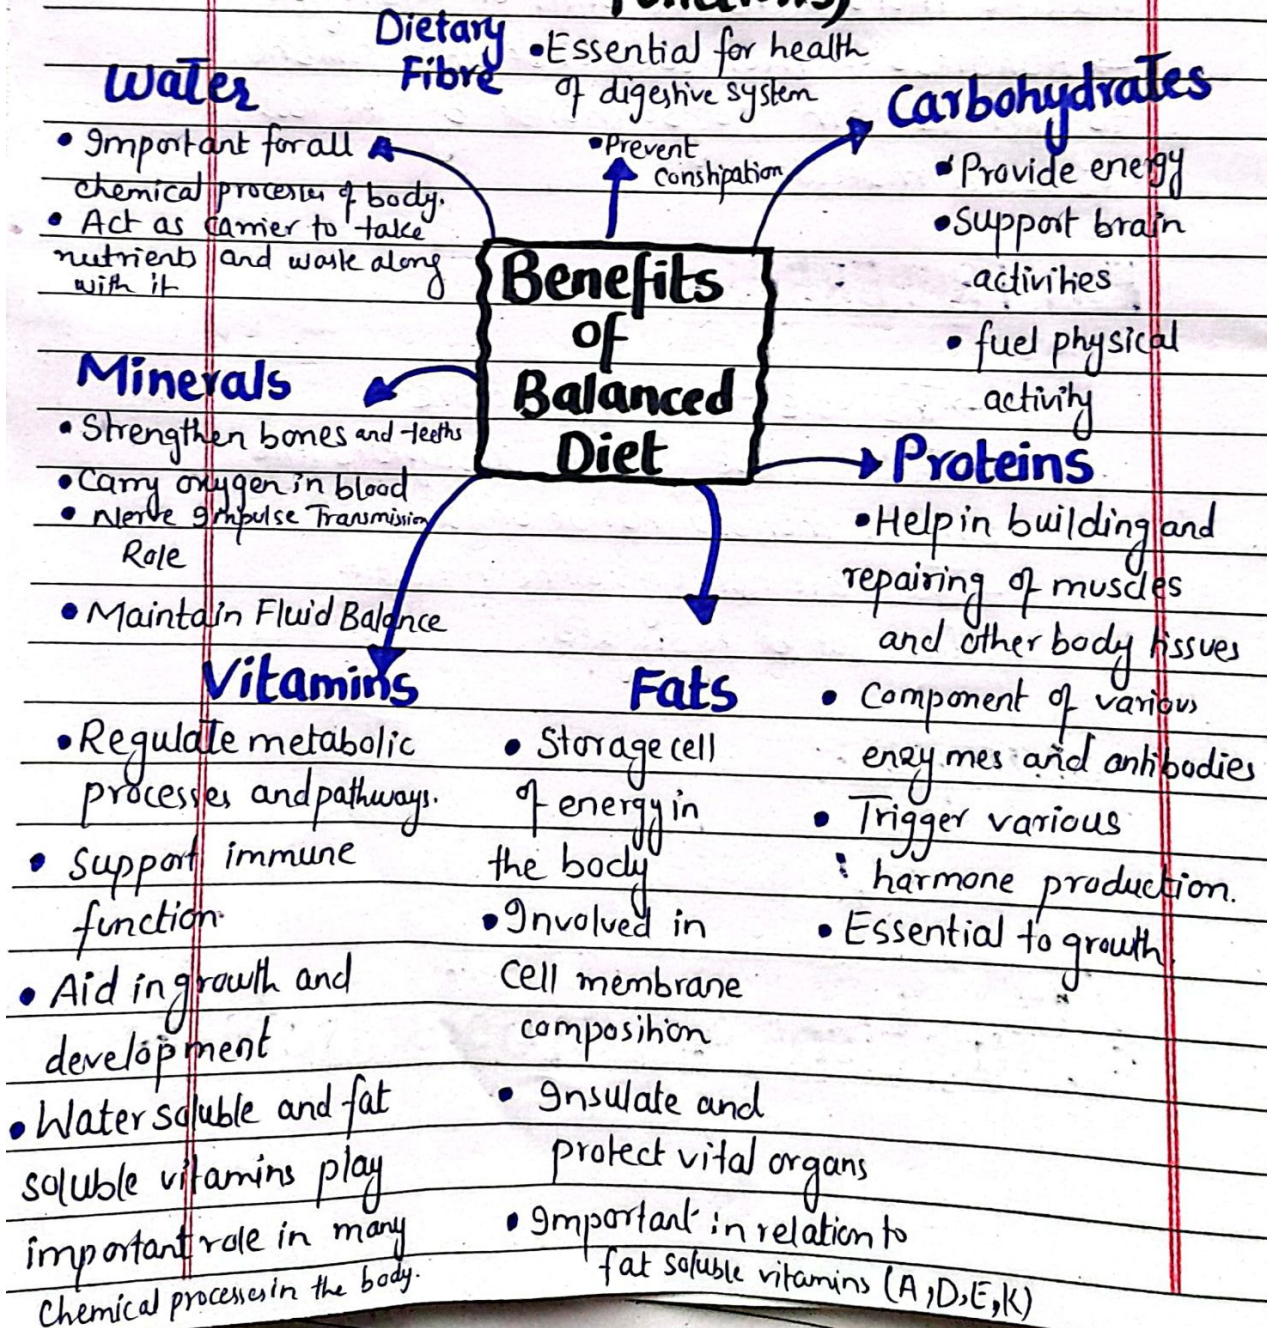 Functions)
Dietary
Fibre
• Essential for health
of digestive system
• Prevent
Constipation
Water
• Important for all
chemical processes of body.
• Act as carrier to take
nutrients and waste along
with it
Carbohydrates
• Provide energy
• Support brain
activities
• fuel physical
activity
Benefits
of
Balanced
Diet
Minerals
• Strengthen bones and teeths
• Carry oxygen in blood
• Nerve Impulse Transmission
Role
• Maintain Fluid Balance
Proteins
• Help in building and
repairing of muscles
and other body tissues
• Component of various
enzymes and antibodies
• Trigger various
harmone production.
• Essential to growth
Vitamins
• Regulate metabolic
processes and pathways.
• Support immune
function.
• Aid in growth and
development
• Water soluble and fat
soluble vitamins play
important role in many
Chemical processes in the body.
Fats
• Storage cell
of energy in
the body
• Involved in
cell membrane
composition
• Insulate and
protect vital organs
• Important in relation to
fat soluble vitamins (A,D,E,K)